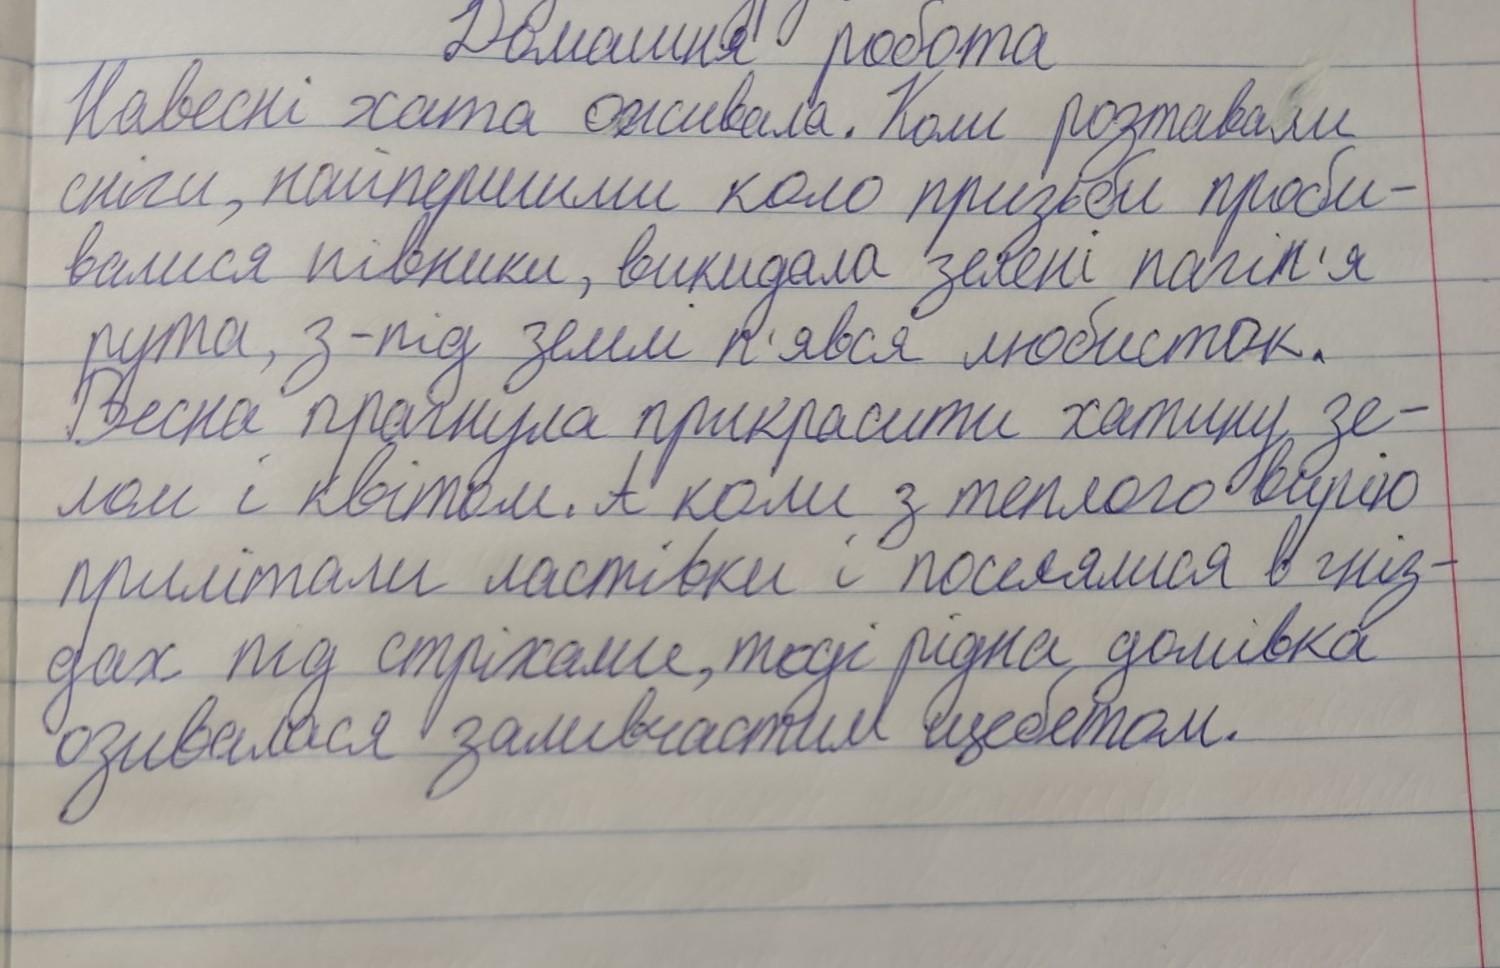 Домашня робота
Навесні хата оживала. Коли розтавали
сніги, найпершими коло призьби проби-
валися півники, викидала зелені пагін'я
рута, з-під землі п'явся любисток.
Весна прагнула прикрасити хатину зе-
лом і квітом. А коли з теплого вирію
прилітали ластівки і поселялися в гніз-
дах під стріхами, тоді рідна домівка
озивалася заливчастим щебетом.